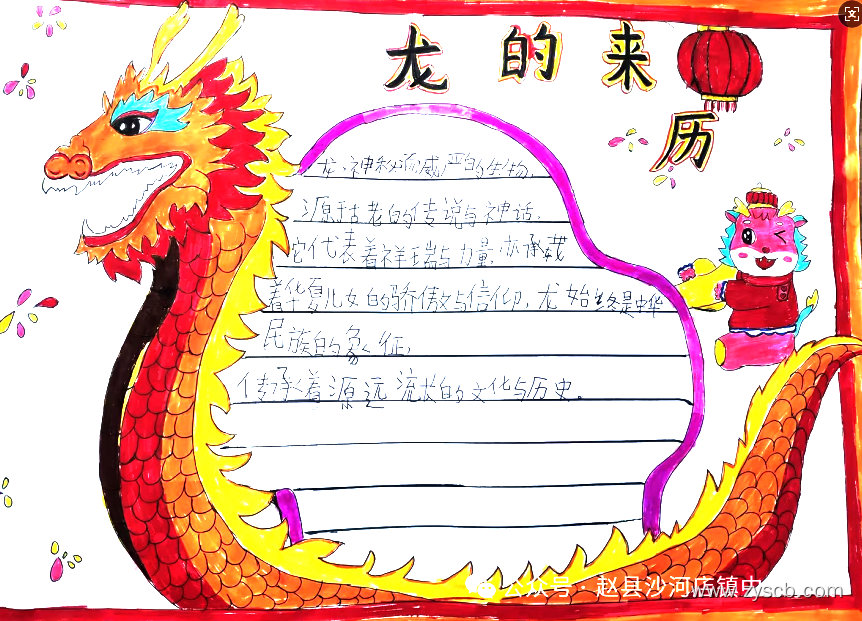 龙的来历
龙、神秘而威严的生物，
源于古老的传说与神话，
它代表着祥瑞与力量，亦承载
着华夏儿女的骄傲与信仰，龙始终是中华
民族的象征，
传承着源远流长的文化与历史。
公众号·赵县沙河店镇中
www.zyscb.com